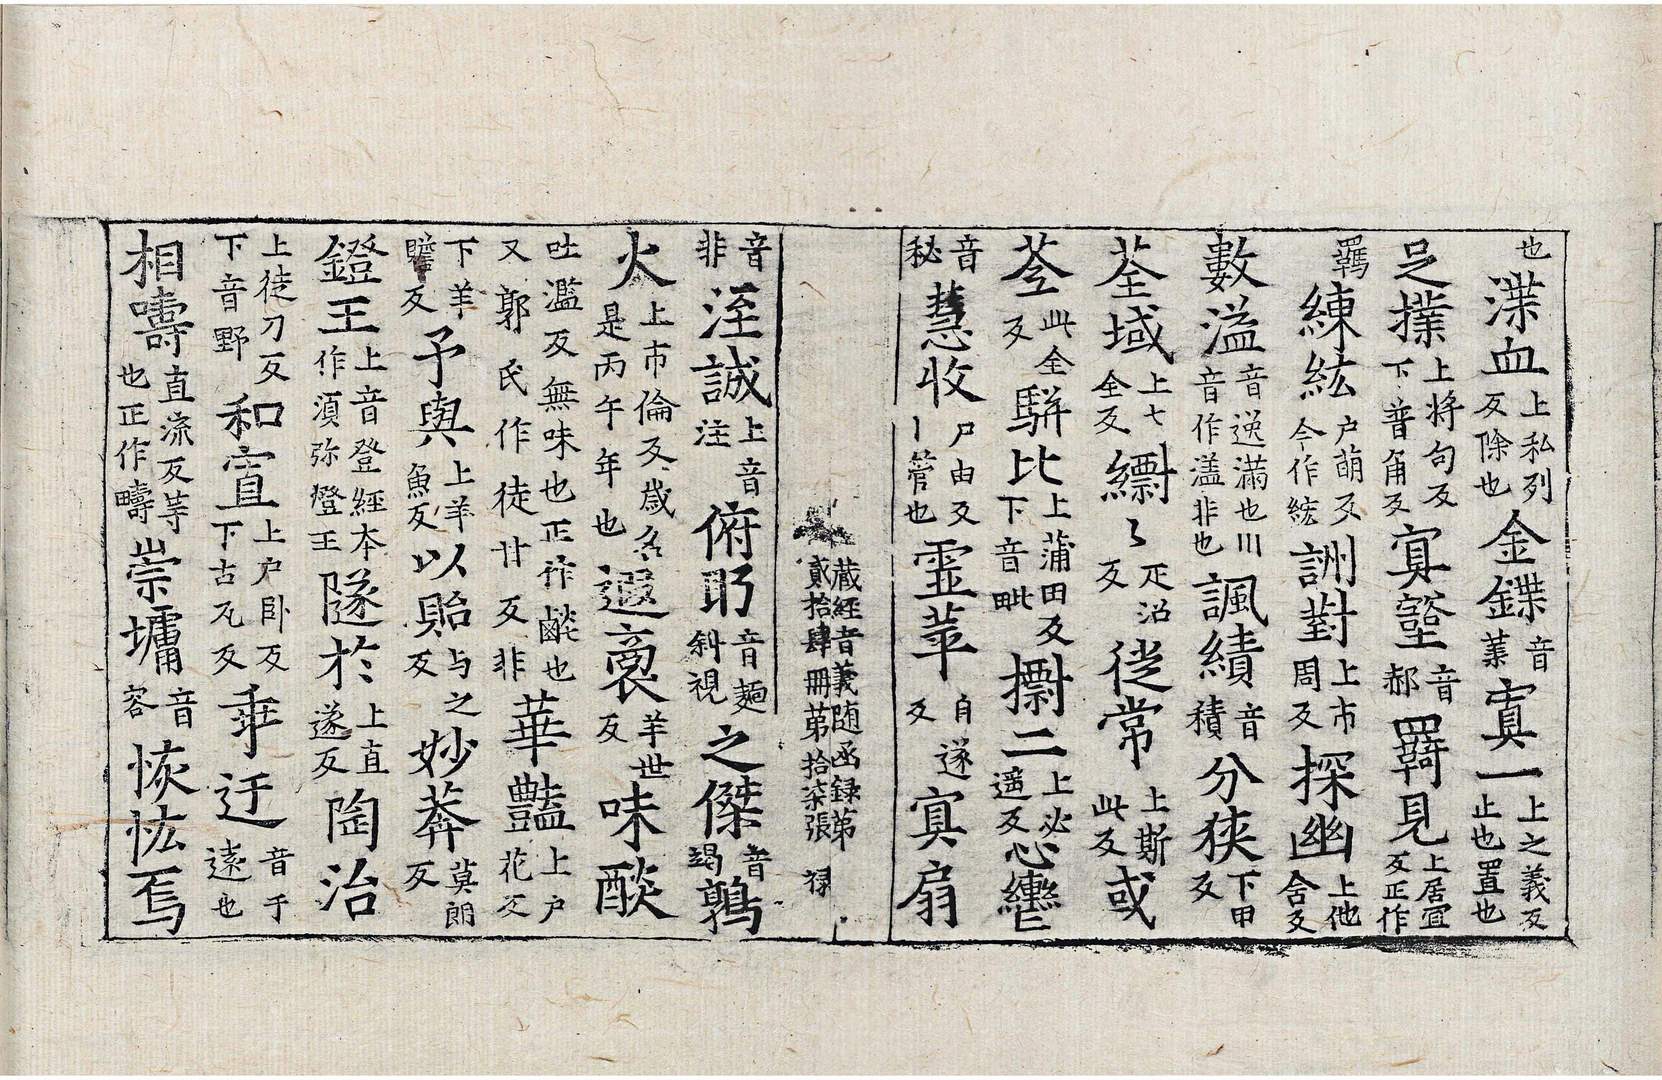 也渫血上私列反除也金鍱音葉寘一上之義反止也置也
足撲上將句反下普角反寘壑音郝羇見上居宜反正作
羈練紘户萌反今作綋詶對上市周反探幽上他含反
數溢音逸滿也川音作㵝非也諷績音積分狹下甲反
荃域上七全反纚々疋沼反從常上斯此反或
荃此全反駢比上蒲田反下音毗擶二上必遥反心轡
音秘慧收尸由反丨管也靈苹自遂反寘扇
藏經音義随函録第貳拾肆冊第拾柒張 禄
音非涇誠上音注俯眄音麵斜視之傑音竭鶉
火上市倫反歳名是丙午年也遐裔羊世反味酸
吐濫反無味也正作䶨也又郭氏作徒甘反非華豔上户花反下
下羊贍反予與上羊魚反以貽与之反妙莽莫朗反
鐙王上音登經本作須弥燈王隧於上直遂反陶冶
上徒刀反下音野和寊上户卧反下古瓦反乖迂音于遠也
相嚋直流反等也正作疇崇墉音容恢恢焉